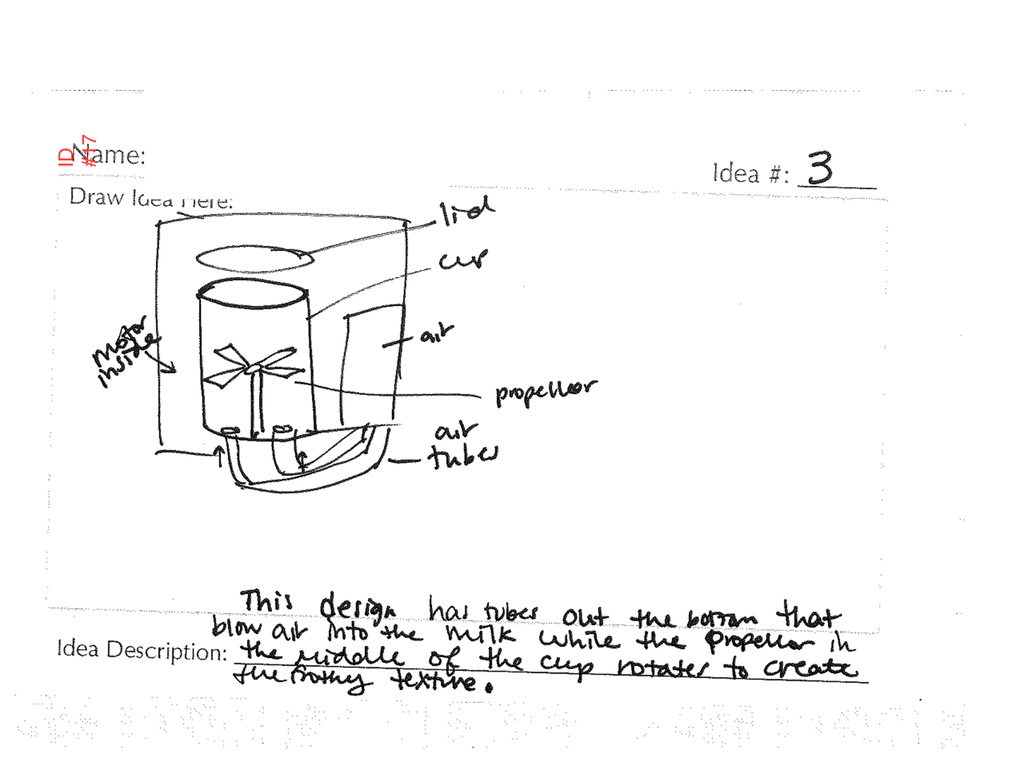 ID #17
Name:
Idea #: 3
Draw Idea Here:
lid
cup
motor
inside
air
propellor
air
tubes
This design has tubes out the bottom that
blow air into the milk while the propellor in
Idea Description: the middle of the cup rotates to create
the frothy texture.